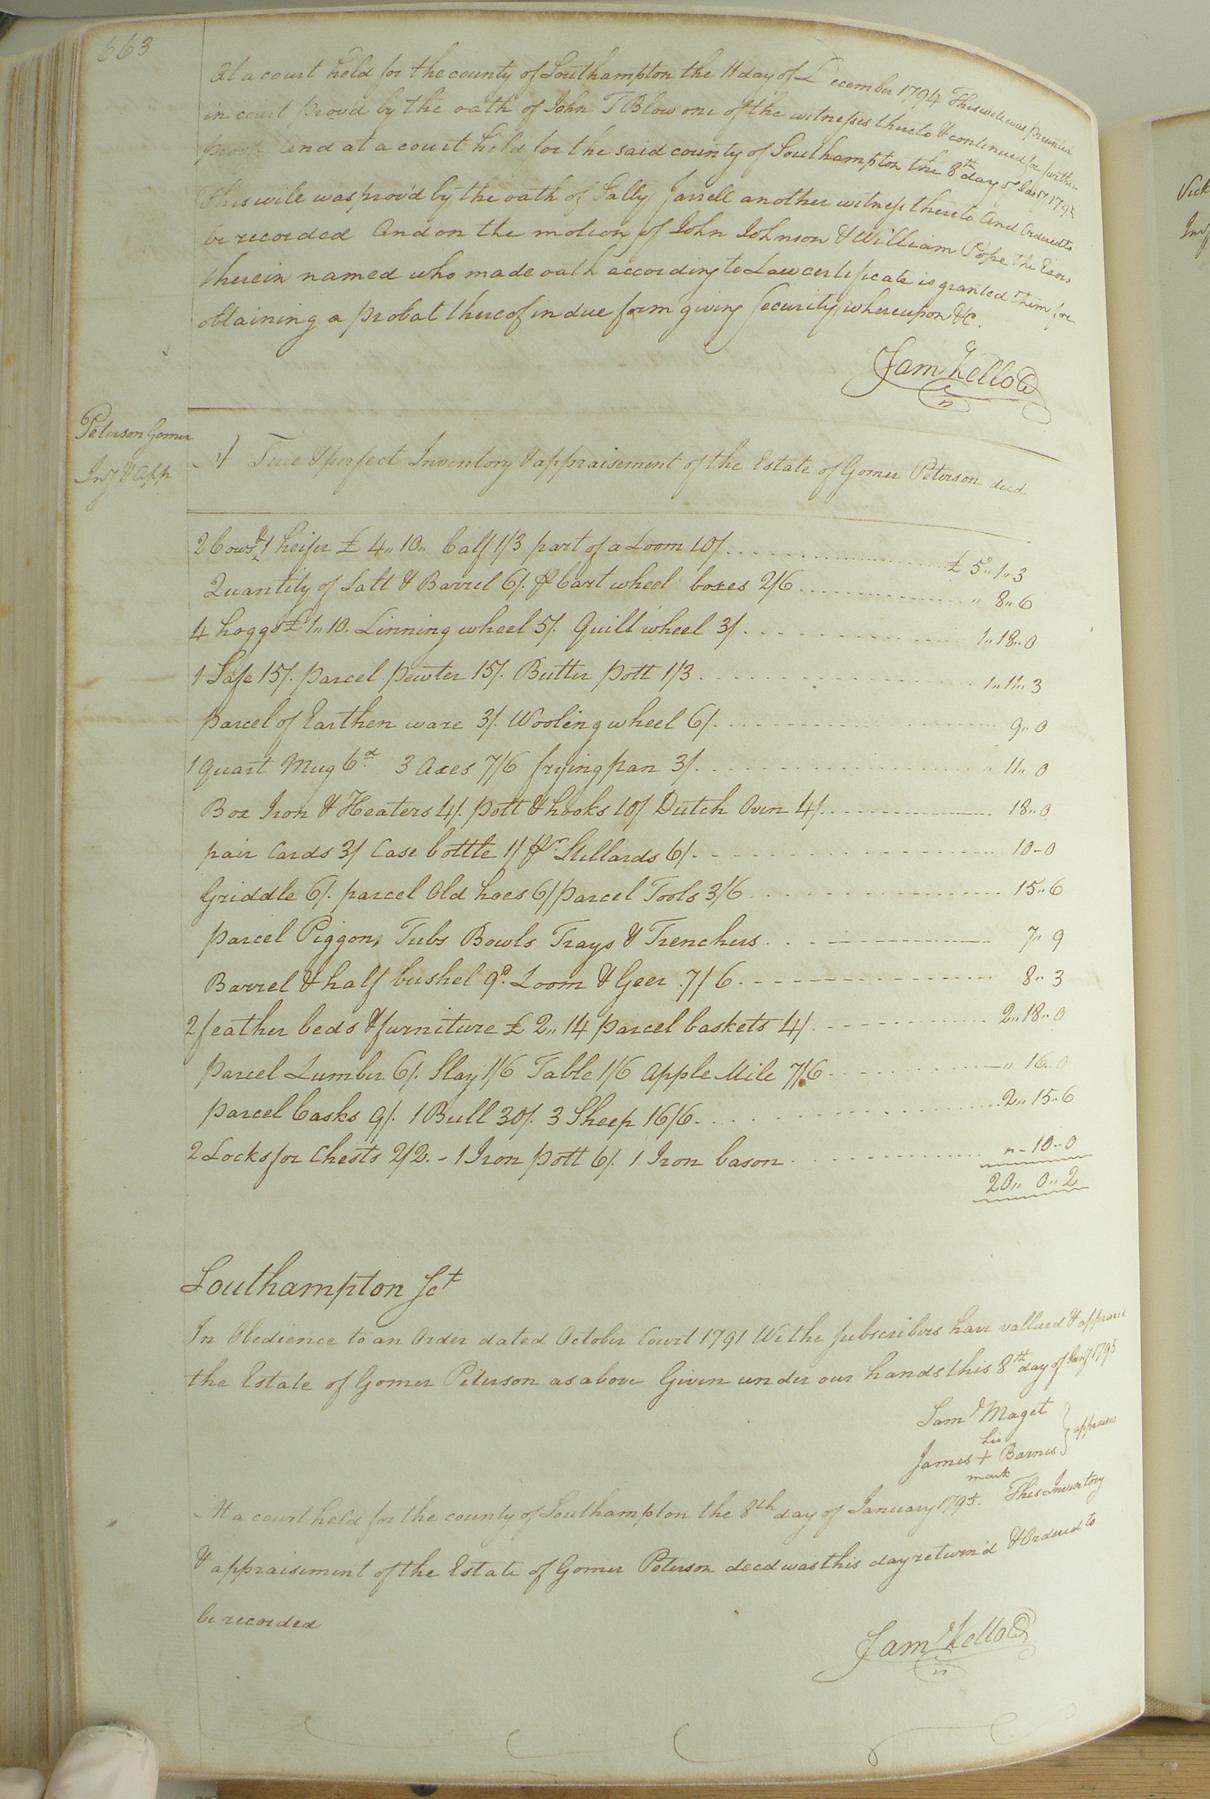 663
At a court held for the county of Southampton the 11 day of December 1794 This will was presented
in court prov'd by the oath of John T Blow one of the witnesses thereto & continued for further
proof And at a court held for the said county of Southampton the 8th day of Jany 1795
This will was prov'd by the oath of Sally Jarrell another witness thereto And Ordered to
be recorded And on the motion of John Johnson & William Pope the Exors
therein named who made oath according to Law certificate is granted them for
obtaining a probat thereof in due form giving Security whereupon &c.
Saml Kello C
Peterson Gomer
Invy & app
A True & perfect Inventory & appraisement of the Estate of Gomer Peterson decd
2 Cows & 1 heifer £ 4,, 10,, Calf 1/3 part of a Loom 10/. £ 5,, 1,, 3
Quantity of Salt & Barrel 6/. pr Cart wheel boxes 2/6 ,, 8,, 6
4 hoggs £ 1,, 10. Linning wheel 5/. Quill wheel 3/. 1,, 18,, 0
1 Safe 15/. parcel pewter 15/. Butter pott 1/3 1,, 11,, 3
parcel of Earthen ware 3/. Wooling wheel 6/. 9,, 0
1 Quart Mug 6d 3 Axes 7/6 frying pan 3/. 11,, 0
Box Iron & Heaters 4/. pott & hooks 10/ Dutch Oven 4/. 18,, 0
pair Cards 3/ Case bottle 1/ pr Stillards 6/. 10 - 0
Griddle 6/. parcel Old hoes 6/ parcel Tools 3/6 15,, 6
parcel Piggons, Tubs Bowls Trays & Trenchers 7,, 9
Barrel & half bushel 9d. Loom & Geer 7/6 8,, 3
2 feather beds & furniture £ 2,, 14 parcel baskets 4/. 2,, 18,, 0
parcel Lumber 6/. Slay 1/6 Table 1/6 Apple Mile 7/6 ,, 16 - 0
parcel Casks 9/. 1 Bull 30/. 3 Sheep 16/6 2,, 15,, 6
2 Locks for Chests 2/2. - 1 Iron pott 6/. 1 Iron bason ,, - 10,, 0
20,, 0,, 2
Southampton Sct
In Obedience to an Order dated October Court 1791 We the subscribers have vallued & appraisd
the Estate of Gomer Peterson as above Given under our hands this 8th day of Jany 1795
Saml Maget
his
James + Barnes } appraisers
mark
At a court held for the county of Southampton the 8th day of January 1795. This Inventory
& appraisement of the Estate of Gomer Peterson decd was this day return'd & Ordered to
be recorded
Saml Kello C